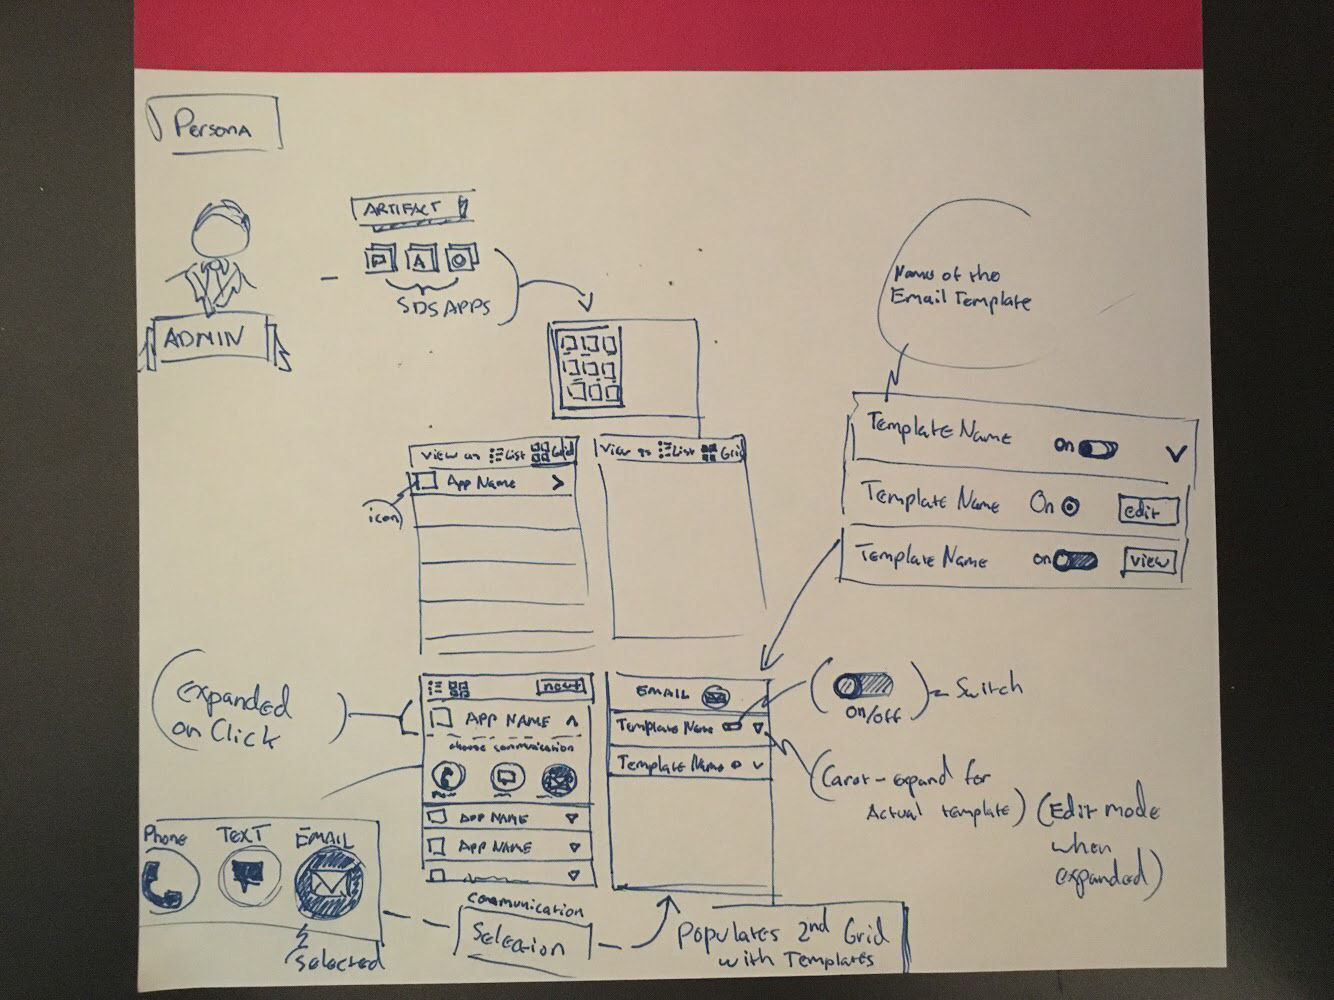 Persona
ADMIN
ARTIFACT
A
SDS APPS
View as List Grid
App Name
icon
View as List Grid
Name of the
Email Template
Template Name On
Template Name On edit
Template Name on view
Expanded
on Click
next
APP NAME
choose communication
APP NAME
APP NAME
EMAIL
Template Name
Template Name
on/off
Switch
Carot - expand for
Actual template)
(Edit mode
when
expanded)
Phone TEXT EMAIL
selected
communication
Selection
Populates 2nd Grid
with Templates